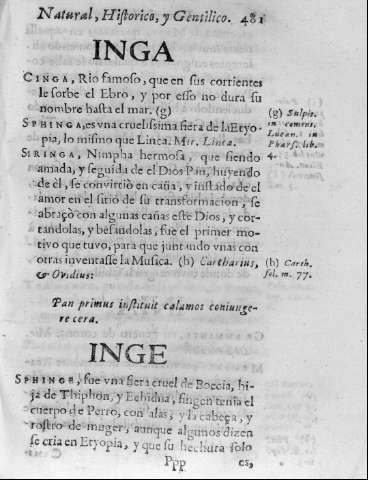 Natural, Historico, y Gentilico. 481
INGA
CINGA, Rio famoso, que en sus corrientes
le sorbe el Ebro, y por esso no dura su
nombre hasta el mar. (g)
(g) Sulpit.
in coment.
Lucan. in
Phars. lib.
4.
SPHINGA, es vna cruelissima fiera de la Etyo-
pia, lo mismo que Lincа. Mir. Linca.
SIRINGA, Nimpha hermosa, que siendo
amada, y seguida de el Dios Pan, huyendo
de èl, se convirtiò en caña, y instado de el
amor en el sitio de su transformacion, se
abraçò con algunas cañas este Dios, y cor-
tandolas, y besandolas, fue el primer mo-
tivo que tuvo, para que juntando vnas con
otras inventasse la Musica. (h) Cartharius,
& Ovidius:
(h) Carth.
fol. m. 77.
Pan primus instituit calamos coniunge-
re cera.
INGE
SPHINGE, fue vna fiera cruel de Boecia, hi-
ja de Thiphon, y Echidna, fingen tenia el
cuerpo de Perro, con alas, y la cabeça, y
rostro de muger, aunque algunos dizen
se cria en Etyopia, y que su hechura solo
Ppp es,